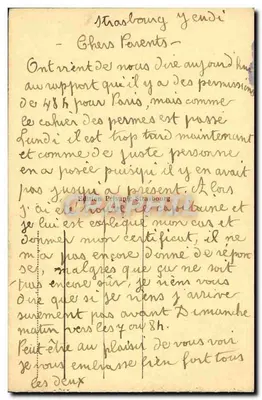 Strasbourg Jeudi
- Chers Parents -
On vient de nous dire aujourd'hui
au rapport qu'il y a des permissions
de 48h pour Paris, mais comme
le cahier des permes est passé
Lundi il est trop tard maintenant
et comme de juste personne
en a posée puisqu'il y en avait
pas jusqu'a present. Alors
j'ai été
je lui est expliqué mon cas et
donner mon certificat, il ne
m'a pas encore donné de répon
se, malgres que ça ne soit
pas encore sûr, je viens vous
dire que si je viens j'arrive
surement pas avant Dimanche
matin vers les 7 ou 8h.
Peut être au plaisir de vous voir
Je vous embrasse bien fort tous
les deux